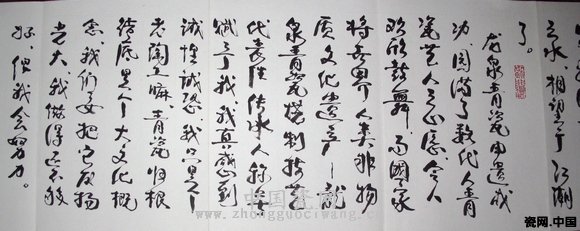 相望于江湖
了。
龙泉青瓷申遗成
功，圆满了数代人青
瓷艺人之心愿，令人
欢欣鼓舞，而国家
将世界人类非物
质文化遗产——龙
泉青瓷烧制技艺
代表性传承人称号
赋予了我，我真感到
诚惶诚恐，我只是一
老陶工嘛，青瓷归根
结底是个大文化概
念，我们要把它发扬
光大，我做得还不够
好，但我会努力。
中国瓷网
www.zhongguociwang.com
瓷网.中国